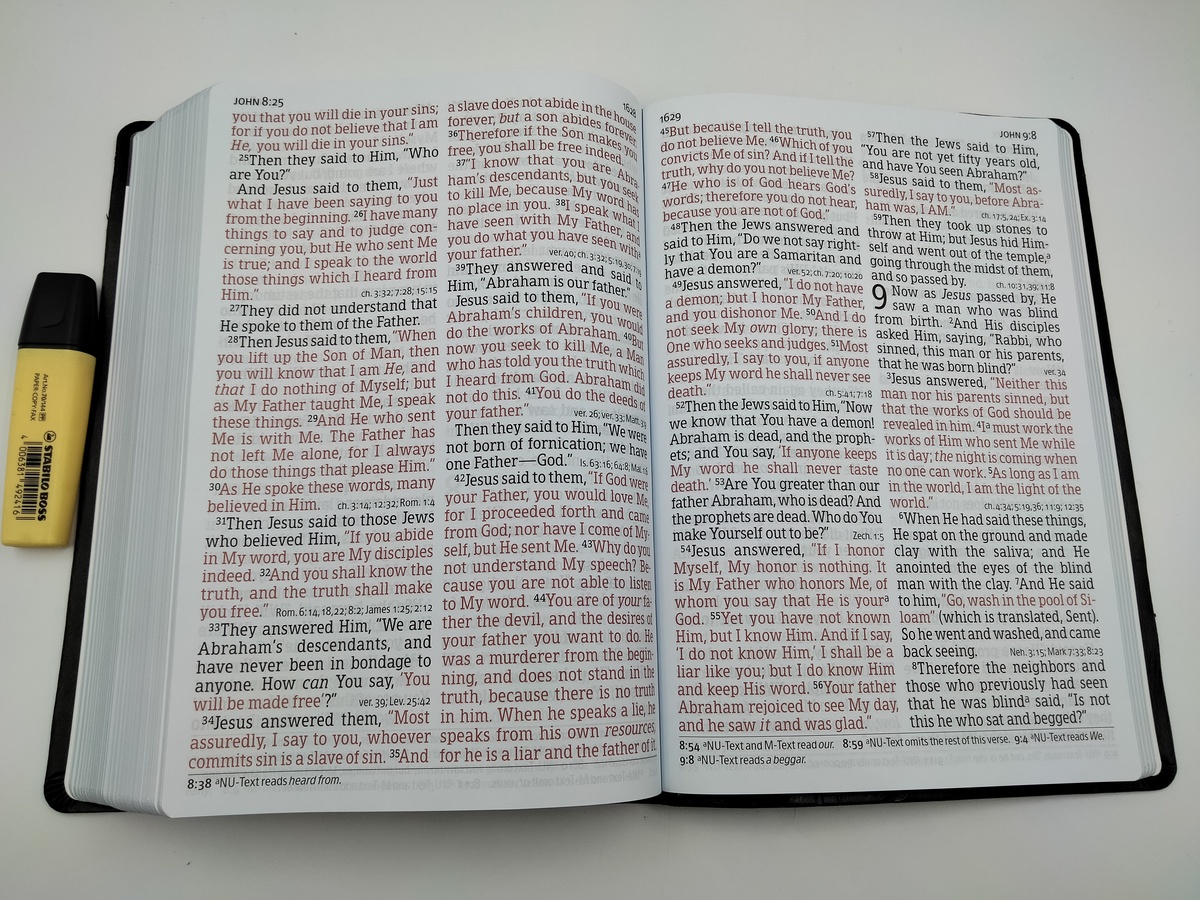 JOHN 8:25
you that you will die in your sins;
for if you do not believe that I am
He, you will die in your sins.”
25Then they said to Him, “Who
are You?”
And Jesus said to them, “Just
what I have been saying to you
from the beginning. 26I have many
things to say and to judge con-
cerning you, but He who sent Me
is true; and I speak to the world
those things which I heard from
Him.” ch. 3:32; 7:28; 15:15
27They did not understand that
He spoke to them of the Father.
28Then Jesus said to them, “When
you lift up the Son of Man, then
you will know that I am He, and
that I do nothing of Myself; but
as My Father taught Me, I speak
these things. 29And He who sent
Me is with Me. The Father has
not left Me alone, for I always
do those things that please Him.”
30As He spoke these words, many
believed in Him. ch. 3:14; 12:32; Rom. 1:4
31Then Jesus said to those Jews
who believed Him, “If you abide
in My word, you are My disciples
indeed. 32And you shall know the
truth, and the truth shall make
you free.” Rom. 6:14, 18, 22; 8:2; James 1:25; 2:12
33They answered Him, “We are
Abraham’s descendants, and
have never been in bondage to
anyone. How can You say, ‘You
will be made free’?” ver. 39; Lev. 25:42
34Jesus answered them, “Most
assuredly, I say to you, whoever
commits sin is a slave of sin. 35And
8:38 aNU-Text reads heard from.
1628
a slave does not abide in the house
forever, but a son abides forever.
36Therefore if the Son makes you
free, you shall be free indeed.
37“I know that you are Abra-
ham’s descendants, but you seek
to kill Me, because My word has
no place in you. 38I speak what I
have seen with My Father, and
you do what you have seen with
your father.” ver. 40; ch. 3:32; 5:19, 30;
39They answered and said to
Him, “Abraham is our father.”
Jesus said to them, “If you were
Abraham’s children, you would
do the works of Abraham. 40But
now you seek to kill Me, a Man
who has told you the truth which
I heard from God. Abraham did
not do this. 41You do the deeds of
your father.” ver. 26; ver. 33; Matt.
Then they said to Him, “We were
not born of fornication; we have
one Father—God.” Is. 63:16; 64:8; Mal.
42Jesus said to them, “If God were
your Father, you would love Me,
for I proceeded forth and came
from God; nor have I come of My-
self, but He sent Me. 43Why do you
not understand My speech? Be-
cause you are not able to listen
to My word. 44You are of your fa-
ther the devil, and the desires of
your father you want to do. He
was a murderer from the begin-
ning, and does not stand in the
truth, because there is no truth
in him. When he speaks a lie, he
speaks from his own resources,
for he is a liar and the father of it.
1629
45But because I tell the truth, you
do not believe Me. 46Which of you
convicts Me of sin? And if I tell the
truth, why do you not believe Me?
47He who is of God hears God’s
words; therefore you do not hear,
because you are not of God.”
48Then the Jews answered and
said to Him, “Do we not say right-
ly that You are a Samaritan and
have a demon?” ver. 52; ch. 7:20; 10:20
49Jesus answered, “I do not have
a demon; but I honor My Father,
and you dishonor Me. 50And I do
not seek My own glory; there is
One who seeks and judges. 51Most
assuredly, I say to you, if anyone
keeps My word he shall never see
death.” ch. 5:41; 7:18
52Then the Jews said to Him, “Now
we know that You have a demon!
Abraham is dead, and the proph-
ets; and You say, ‘If anyone keeps
My word he shall never taste
death.’ 53Are You greater than our
father Abraham, who is dead? And
the prophets are dead. Who do You
make Yourself out to be?” Zech. 1:5
54Jesus answered, “If I honor
Myself, My honor is nothing. It
is My Father who honors Me, of
whom you say that He is youra
God. 55Yet you have not known
Him, but I know Him. And if I say,
‘I do not know Him,’ I shall be a
liar like you; but I do know Him
and keep His word. 56Your father
Abraham rejoiced to see My day,
and he saw it and was glad.”
JOHN 9:8
57Then the Jews said to Him,
“You are not yet fifty years old,
and have You seen Abraham?”
58Jesus said to them, “Most as-
suredly, I say to you, before Abra-
ham was, I AM.” ch. 17:5, 24; Ex. 3:14
59Then they took up stones to
throw at Him; but Jesus hid Him-
self and went out of the temple,a
going through the midst of them,
and so passed by. ch. 10:31, 39; 11:8
9 Now as Jesus passed by, He
saw a man who was blind
from birth. 2And His disciples
asked Him, saying, “Rabbi, who
sinned, this man or his parents,
that he was born blind?” ver. 34
3Jesus answered, “Neither this
man nor his parents sinned, but
that the works of God should be
revealed in him. 4Ia must work the
works of Him who sent Me while
it is day; the night is coming when
no one can work. 5As long as I am
in the world, I am the light of the
world.” ch. 4:34; 5:19, 36; 11:9; 12:35
6When He had said these things,
He spat on the ground and made
clay with the saliva; and He
anointed the eyes of the blind
man with the clay. 7And He said
to him, “Go, wash in the pool of Si-
loam” (which is translated, Sent).
So he went and washed, and came
back seeing. Neh. 3:15; Mark 7:33; 8:23
8Therefore the neighbors and
those who previously had seen
that he was blinda said, “Is not
this he who sat and begged?”
8:54 aNU-Text and M-Text read our. 8:59 aNU-Text omits the rest of this verse. 9:4 aNU-Text reads We.
9:8 aNU-Text reads a beggar.
Art.No. 70/144
PAPER-COPY-FAX
STABILO BOSS
4 006381 492416